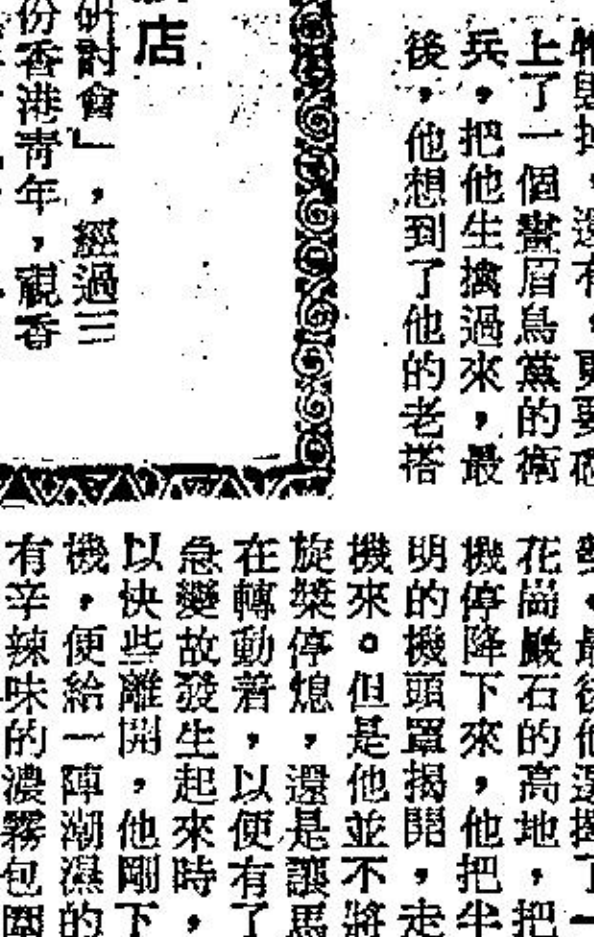 上了一個畫眉鳥黨的衛
兵，把他生擒過來，最
後，他想到了他的老搭
店
研討會」，經過三
份香港青年，親香
花崗巖石的高地，把
機停降下來，他把半
明的機頭罩揭開，走
機來。但是他並不將
旋槳停熄，還是讓馬
在轉動着，以便有了
急變故發生起來時，
以快些離開，他剛下
機，便給一陣潮濕的
有辛辣味的濃霧包圍